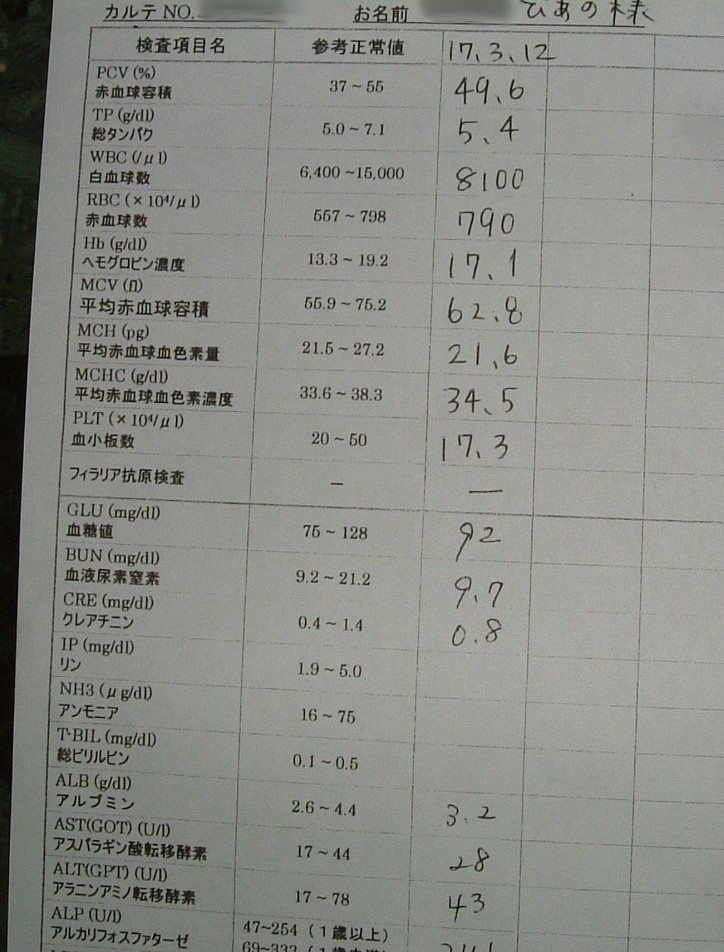 カルテNO. お名前 ぴあの様
検査項目名 参考正常値 17.3.12
PCV (%)
赤血球容積 37～55 49.6
TP (g/dl)
総タンパク 5.0～7.1 5.4
WBC (/μl)
白血球数 6,400～15,000 8100
RBC (×10⁴/μl)
赤血球数 557～798 790
Hb (g/dl)
ヘモグロビン濃度 13.3～19.2 17.1
MCV (fl)
平均赤血球容積 55.9～75.2 62.8
MCH (pg)
平均赤血球血色素量 21.5～27.2 21.6
MCHC (g/dl)
平均赤血球血色素濃度 33.6～38.3 34.5
PLT (×10⁴/μl)
血小板数 20～50 17.3
フィラリア抗原検査 － －
GLU (mg/dl)
血糖値 75～128 92
BUN (mg/dl)
血液尿素窒素 9.2～21.2 9.7
CRE (mg/dl)
クレアチニン 0.4～1.4 0.8
IP (mg/dl)
リン 1.9～5.0
NH3 (μg/dl)
アンモニア 16～75
T-BIL (mg/dl)
総ビリルビン 0.1～0.5
ALB (g/dl)
アルブミン 2.6～4.4 3.2
AST(GOT) (U/l)
アスパラギン酸転移酵素 17～44 28
ALT(GPT) (U/l)
アラニンアミノ転移酵素 17～78 43
ALP (U/l) 47~254（1歳以上）
アルカリフォスファターゼ